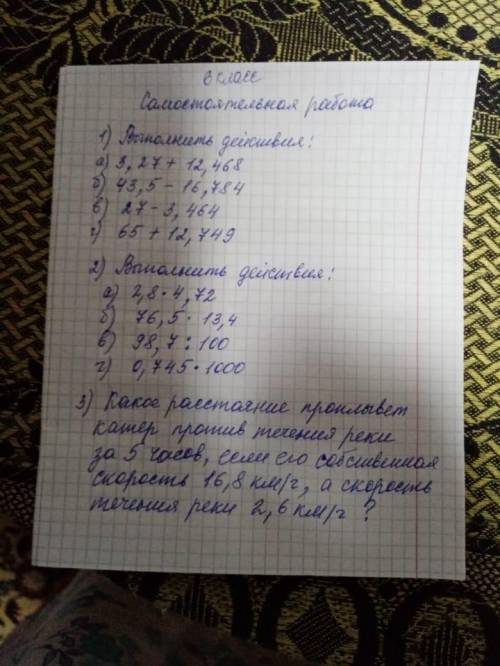 6 класс
Самостоятельная работа
1) Выполнить действия:
а) 3,27 + 12,468
б) 43,5 - 16,784
в) 27 - 3,464
г) 65 + 12,749
2) Выполнить действия:
а) 2,8 · 4,72
б) 76,5 · 13,4
в) 98,7 : 100
г) 0,745 · 1000
3) Какое расстояние проплывет
катер против течения реки
за 5 часов, если его собственная
скорость 16,8 км/ч, а скорость
течения реки 2,6 км/ч ?